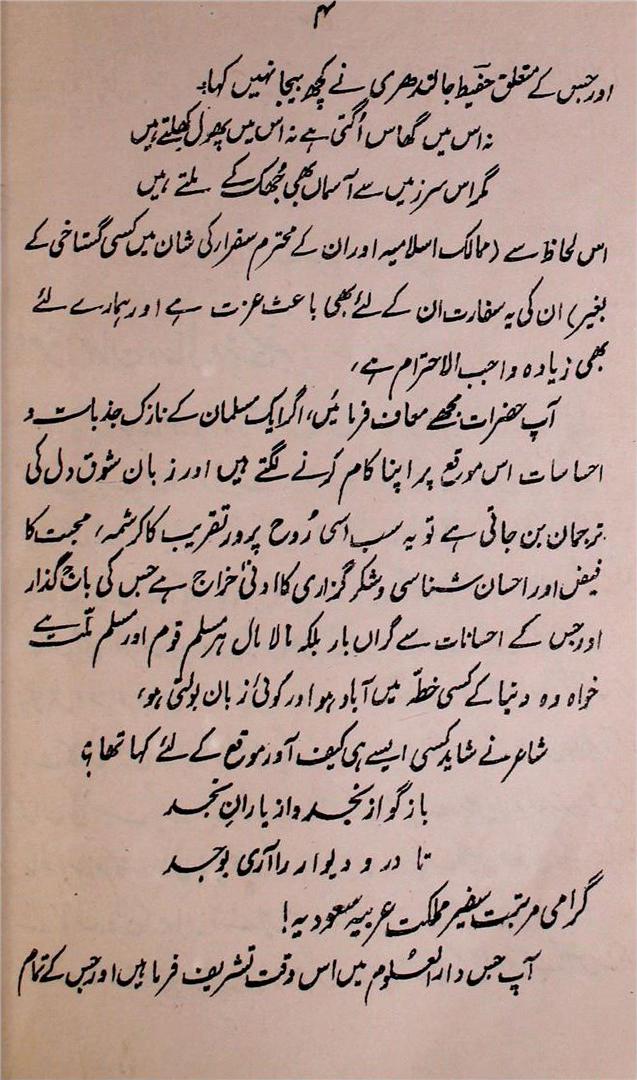 ۴
اور جس کے متعلق حفیظ جالندھری نے کچھ بیجا نہیں کہا؎
نہ اس میں گھاس اُگتی ہے نہ اس میں پھول کھلتے ہیں
مگر اس سرزمیں سے آسماں بھی جُھک کے ملتے ہیں
اس لحاظ سے (ممالک اسلامیہ اور ان کے محترم سفراء کی شان میں کسی گستاخی کے
بغیر) ان کی یہ سفارت ان کے لئے بھی باعث عزت ہے اور ہمارے لئے
بھی زیادہ واجب الاحترام ہے،
آپ حضرات مجھے معاف فرمائیں، اگر ایک مسلمان کے نازک جذبات و
احساسات اس موقع پر اپنا کام کرنے لگتے ہیں اور زبان شوق دل کی
ترجمان بن جاتی ہے تو یہ سب اسی رُوح پرور تقریب کا کرشمہ، محبت کا
فیض اور احسان شناسی و شکر گزاری کا ادنیٰ خراج ہے جس کی باج گذار
اور جس کے احسانات سے گراں بار بلکہ مالا مال ہر مسلم قوم اور مسلم ملّت ہے
خواہ وہ دنیا کے کسی خطّہ میں آباد ہو اور کوئی زبان بولتی ہو،
شاعر نے شاید کسی ایسے ہی کیف آور موقع کے لئے کہا تھا؎
باز گو از نجد و از یارانِ نجد
تا در و دیوار را آری بوجد
گرامی مرتبت سفیر مملکت عربیہ سعودیہ!
آپ جس دارالعلُوم میں اس وقت تشریف فرما ہیں اور جس کے تمام